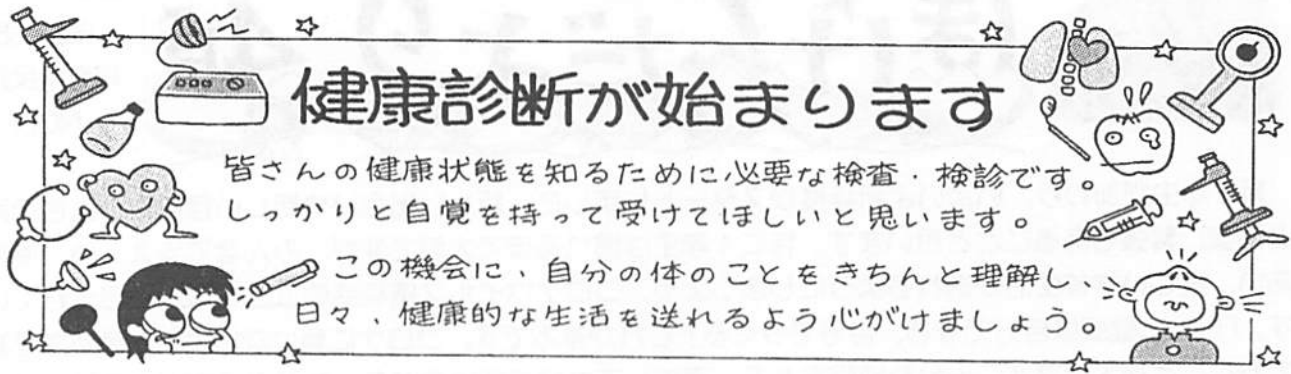 健康診断が始まります
皆さんの健康状態を知るために必要な検査・検診です。
しっかりと自覚を持って受けてほしいと思います。
この機会に、自分の体のことをきちんと理解し、
日々、健康的な生活を送れるよう心がけましょう。